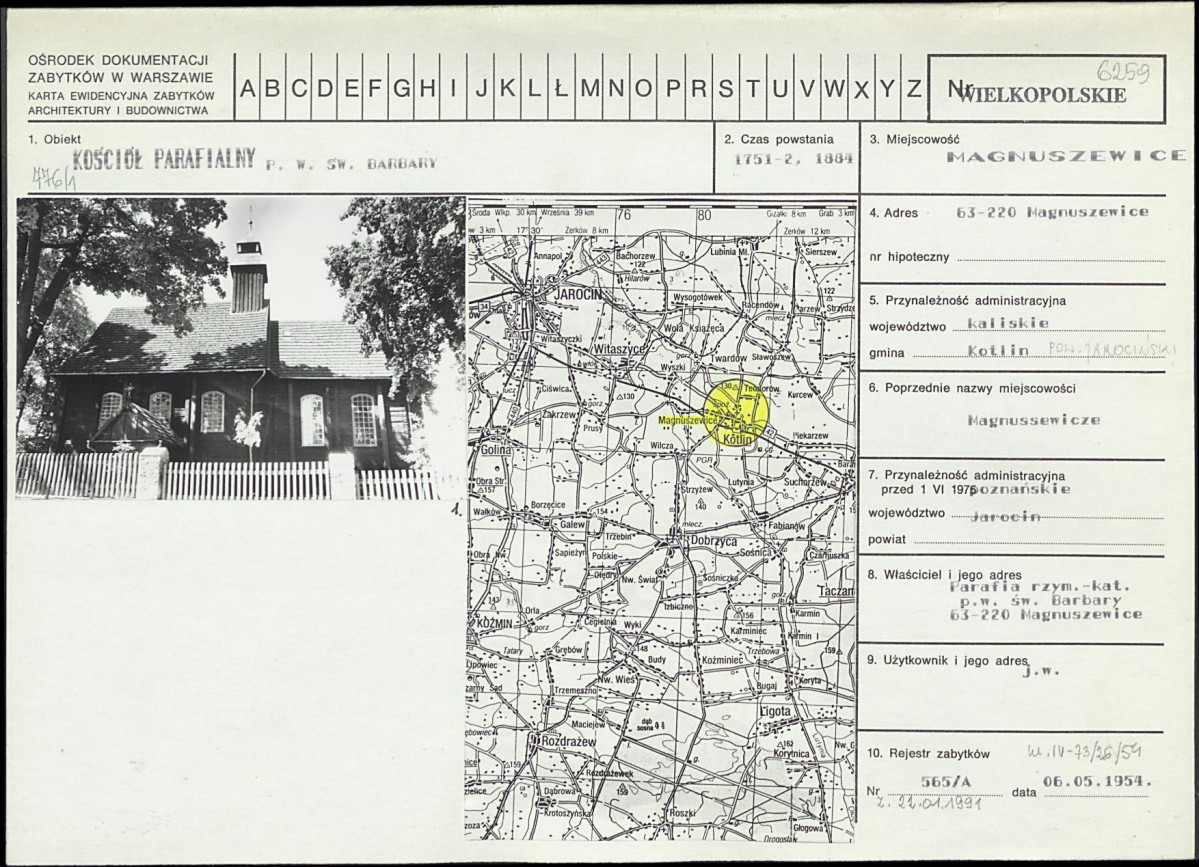 OŚRODEK DOKUMENTACJI
ZABYTKÓW W WARSZAWIE
KARTA EWIDENCYJNA ZABYTKÓW
ARCHITEKTURY I BUDOWNICTWA
A B C D E F G H I J K L Ł M N O P R S T U V W X Y Z
Nr
6259
WIELKOPOLSKIE
1. Obiekt
KOŚCIÓŁ PARAFIALNY P. W. ŚW. BARBARY
776/1
2. Czas powstania
1751-2, 1884
3. Miejscowość
MAGNUSZEWICE
4. Adres 63-220 Magnuszewice
nr hipoteczny
5. Przynależność administracyjna
województwo kaliskie
gmina Kotlin POW. JAROCIŃSKI
6. Poprzednie nazwy miejscowości
Magnussewicze
7. Przynależność administracyjna
przed 1 VI 1975 poznańskie
województwo Jarocin
powiat
8. Właściciel i jego adres
Parafia rzym.-kat.
p.w. św. Barbary
63-220 Magnuszewice
9. Użytkownik i jego adres
j.w.
10. Rejestr zabytków kl. IV-73/26/54
Nr 565/A data 06.05.1954.
z. 22.01.1991
1.
Środa Wlkp. 30 km Września 39 km 76 80 Gizałki 8 km Grab 3 km
3 km 17°30' Żerków 8 km Żerków 12 km
Annapol Bachorzew Lubinia Mł. Sierszew
122
Hilarów
JAROCIN Wysogotówek Racendów 122
Strzydze
Wola Książęca
Witaszyczki
Witaszyce Twardów Sławoszew
Wyszki
Ciświca 130 130 Teodorów Kurcew
Zakrzew Magnuszewice
Prusy Kotlin Piekarzew
Golina Wilcza
PGR
Obra Str. Lutynia Suchorzew
157 Strzyżew
Borzęcice 140
Wałków Galew 154 Fabianów
Trzebin Dobrzyca
Obra Nw. Sapieżyn Polskie Sośnica Czarnuszka
Olędry Nw. Świat Sośniczka
143 Taczan
Izbiczno
Orla 156 Karmin
KOŹMIN Cegielnia Wyki Karminiec Karmin I
148
Tatary Gręb&oacute;w Budy Koźminiec Trzebowa 159
Lipowiec
Nw. Wieś Bugaj Koryta
Trzemeszno
dąb
sosna Ligota
Maciejew
Rozdrażew 162
Korytnica
159 Rozdrażewek
Dąbrowa 159
Krotoszyńska Roszki
Głogowa
Drogosław